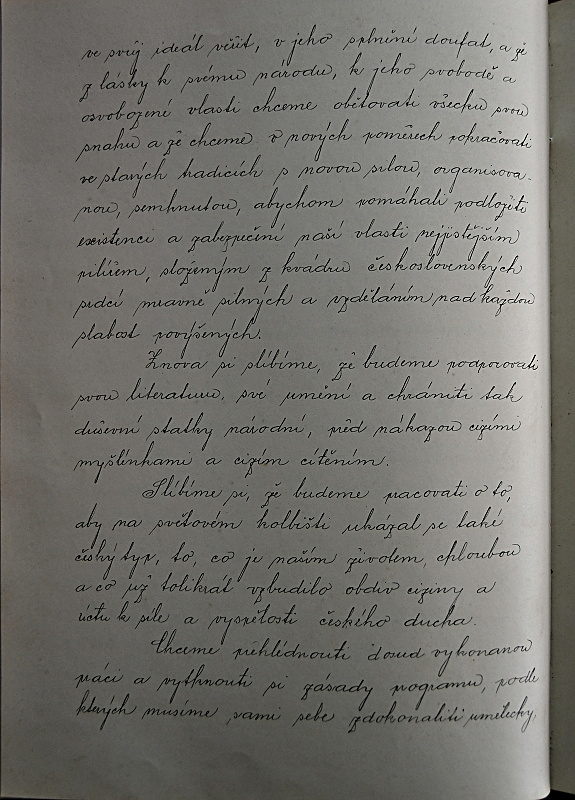 ve svůj ideál věřit, v jeho splnění doufat, a že
z lásky k svému národu, k jeho svobodě a
osvobozené vlasti chceme obětovati všecku svou
snahu a že chceme v nových poměrech pokračovati
ve starých tradicích s novou silou, organisova-
nou, semknutou, abychom pomáhali podložiti
existenci a zabezpečení naší vlasti nejjistějším
pilířem, složeným z kvádru československých
srdcí mravně silných a vzděláním nad každou
slabost povýšených.
Znova si slíbíme, že budeme podporovati
svou literaturu, své umění a chrániti tak
duševní statky národní, před nákazou cizími
myšlénkami a cizím cítěním.
Slíbíme si, že budeme pracovati o to,
aby na světovém kolbišti ukázal se také
český typ, to, co je naším životem, chloubou
a co už tolikrát vzbudilo obdiv ciziny a
úctu k síle a vyspělosti českého ducha.
Chceme přehlédnouti dosud vykonanou
práci a vytknouti si zásady programu, podle
kterých musíme sami sebe zdokonaliti umělecky,